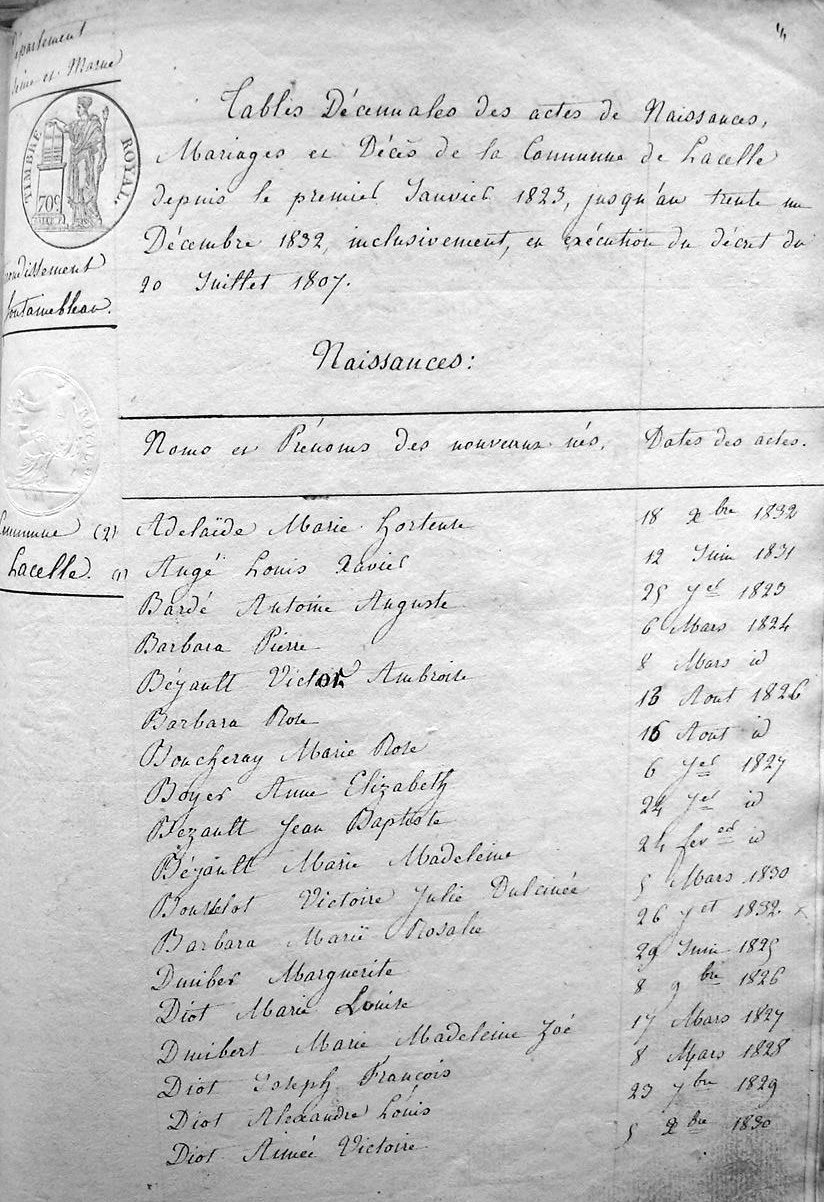 Département
Seine et Marne
TIMBRE ROYAL.
70c
Arrondissement
Fontainebleau.
Commune (2)
Lacelle. (1)
Tables Décennales des actes de Naissances,
Mariages et Décès de la Commune de Lacelle
depuis le premier Janvier 1823, jusqu'au trente un
Décembre 1832, inclusivement, en exécution du décret du
20 Juillet 1807.
Naissances:
Noms et Prénoms des nouveaux nés. Dates des actes.
Adelaïde Marie hortense 18 Xbre 1832
Augé Louis Xavier 12 Juin 1831
Bardé Antoine Auguste 25 Jer 1823
Barbara Pierre 6 Mars 1824
Béjault Victor Ambroise 8 Mars id
Barbara Rose 13 Aout 1826
Boucheray Marie Rose 16 Aout id
Boyer Anne Elizabeth 6 Jer 1827
Bezault Jean Baptiste 24 Jer id
Béjault Marie Madeleine 24 fever id
Bousselot Victoire Julie Dulcinée 5 Mars 1830
Barbara Marie Rosalie 26 Jet 1832
Dmiber Marguerite 29 Juin 1825
Diot Marie Louise 8 9bre 1826
Dmibert Marie Madeleine Zoé 17 Mars 1827
Diot Joseph François 8 Mars 1828
Diot Alexandre Louis 23 7bre 1829
Diot Aimée Victoire 5 Xbre 1830